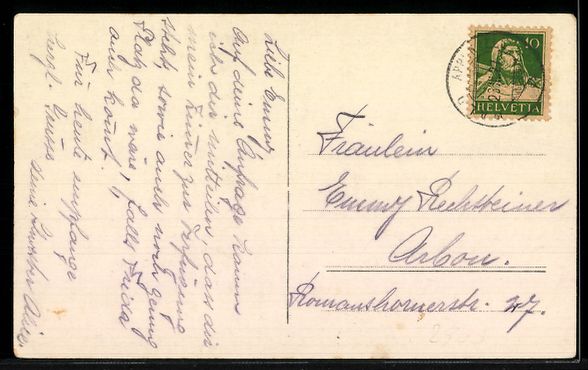 Liebe Emmy
Auf deine Anfrage kann
ich dir mitteilen, dass dir
mein Zimmer zur Verfügung
steht, sowie auch noch genug
Platz da wäre, falls Frieda
auch kommt.
Für heute empfange
herzl. Grüsse deine Schwester
10
HELVETIA
Fräulein
Emmy Rechsteiner
Arbon.
Romanshornerstr. 47.